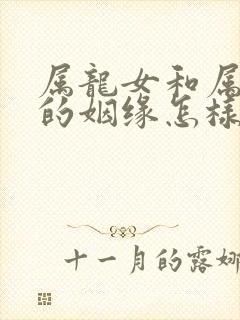 属龍女和属
的姻缘怎様
十一月的露娜